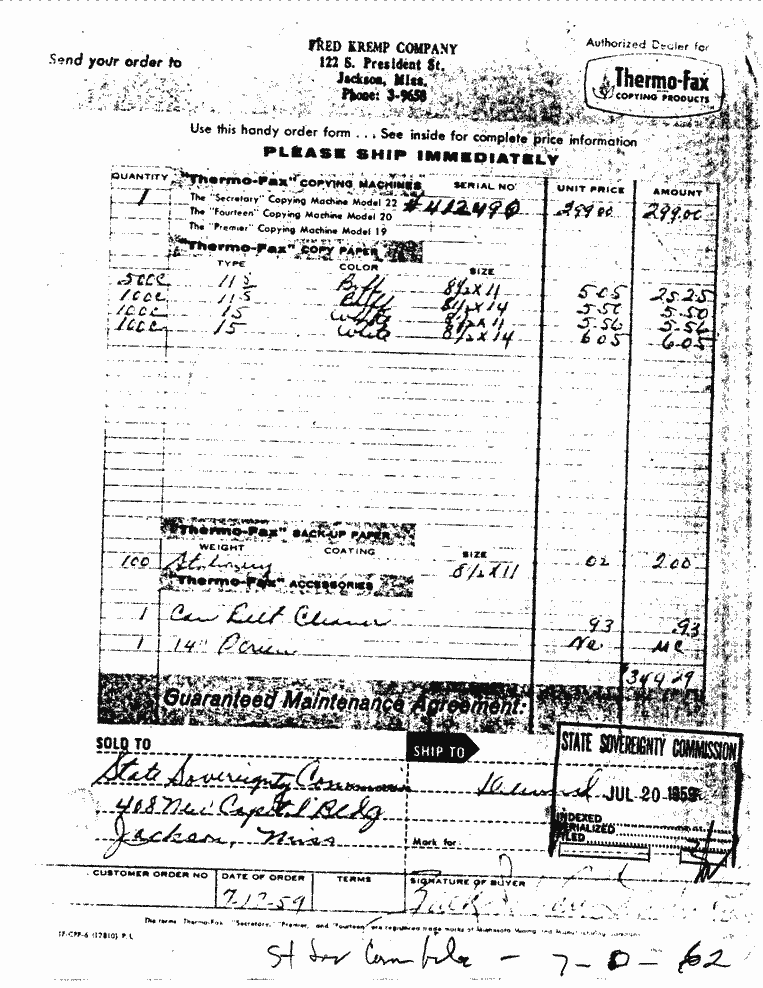 Send your order to
FRED KREMP COMPANY
122 S. President St.
Jackson, Miss.
Phone: 3-9658
Authorized Dealer for
Thermo-Fax
COPYING PRODUCTS
Use this handy order form . . . See inside for complete price information
PLEASE SHIP IMMEDIATELY
QUANTITY "Thermo-Fax" COPYING MACHINES SERIAL NO UNIT PRICE AMOUNT
1 The "Secretary" Copying Machine Model 22 #412490 299 00 299.00
The "Fourteen" Copying Machine Model 20
The "Premier" Copying Machine Model 19
"Thermo-Fax" COPY PAPER
TYPE COLOR SIZE
5000 115 Buff 8½x11 5 05 25 25
1000 115 Buff 8½x14 5.50 5.50
1000 15 White 8½x11 5.56 5.56
1000 15 White 8½x14 6 05 6 05
"Thermo-Fax" BACK-UP PAPER
WEIGHT COATING SIZE
100 Stationery 8½x11 02 2.00
"Thermo-Fax" ACCESSORIES
1 Can Belt Cleaner 93 .93
1 14" NC NC
$344.29
Guaranteed Maintenance Agreement:
SOLD TO
SHIP TO
State Sovereignty Commission
408 New Capitol Bldg
Jackson, Miss
Mark for
STATE SOVEREIGNTY COMMISSION
JUL 20 1959
INDEXED
SERIALIZED
FILED
CUSTOMER ORDER NO DATE OF ORDER TERMS SIGNATURE OF BUYER
7-17-59
The terms Thermo-Fax "Secretary," "Premier," and "Fourteen" are registered trade marks of Minnesota Mining and Manufacturing Company
17-CPP-6 (12810) P. L
7-0-62